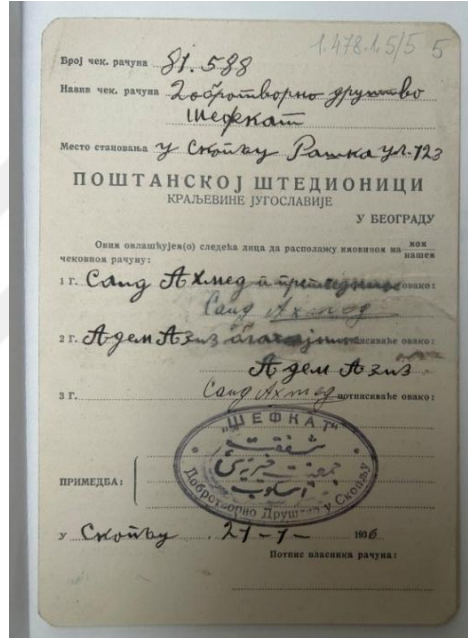 1.478.1.5/5 5
Број чек. рачуна 81.588
Назив чек. рачуна Добротворно друштво
Шефкат
Место становања у Скопљу Рашка ул. 123
ПОШТАНСКОЈ ШТЕДИОНИЦИ
КРАЉЕВИНЕ ЈУГОСЛАВИЈЕ
У БЕОГРАДУ
Овим овлашћујем(о) следећа лица да располажу имовином на мом
нашем
чековном рачуну:
1 Г. Саид Ахмед овако:
Саид Ахмед
2 Г. Адем Азиз потписиваће овако:
Адем Азиз
3 Г. Саид Ахмед потписиваће овако:
"ШЕФКАТ"
شفقت
جمعيت خيريه سى
اسكوب
Добротворно Друштво у Скопљу
ПРИМЕДБА:
У Скопљу 21-1- 1936
Потпис власника рачуна: